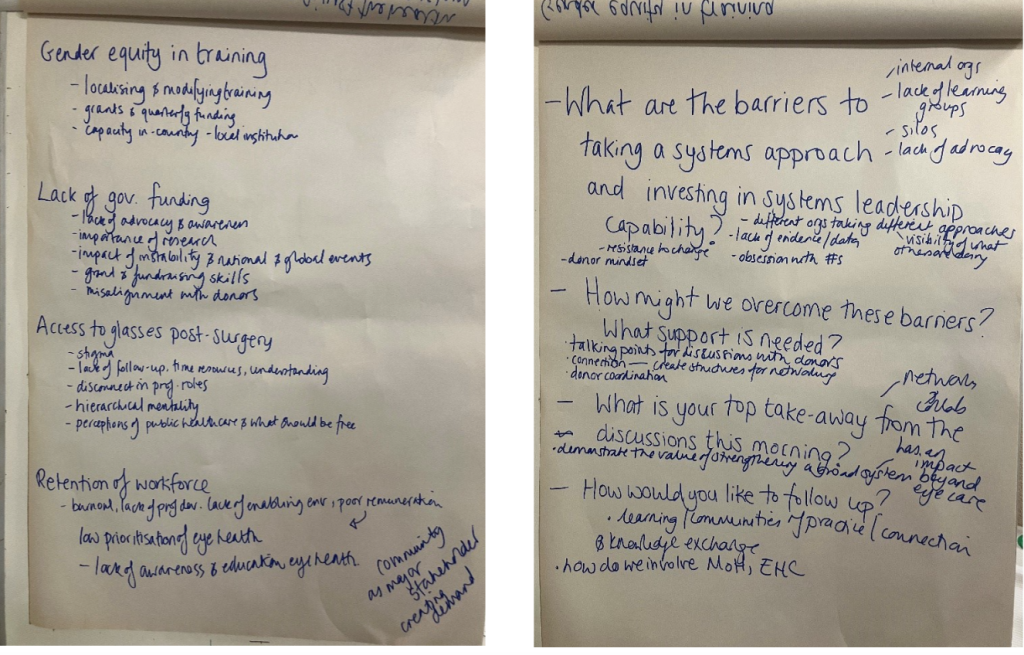 Gender equity in training
- localising & modifying training
- grants & quarterly funding
- capacity in-country - local institution
Lack of gov. funding
- lack of advocacy & awareness
- importance of research
- impact of instability & national & global events
- grant & fundraising skills
- misalignment with donors
Access to glasses post-surgery
- stigma
- lack of follow-up. time resources, understanding
- disconnect in prof. roles
- hierarchical mentality
- perceptions of public healthcare & what should be free
Retention of workforce
- burnout, lack of prof dev. lack of enabling env, poor remuneration
low prioritisation of eye health
- lack of awareness & education eye health
community
as major
stakeholder
creating
demand
- What are the barriers to
taking a systems approach
and investing in systems leadership
capability?
- internal orgs
- lack of learning
groups
- silos
- lack of advocacy
- different orgs taking different approaches
- lack of evidence/data
visibility of what
others are doing
- resistance to change
- obsession with #s
- donor mindset
- How might we overcome these barriers?
What support is needed?
• talking points for discussions with donors
• connection — create structures for networking
• donor coordination
- What is your top take-away from the
discussions this morning?
networks
&
has an
impact
• demonstrate the value of strengthening a broad system beyond
eye care
- How would you like to follow up?
• learning/communities of practice/connection
& knowledge exchange
• how do we involve MoH, EHC